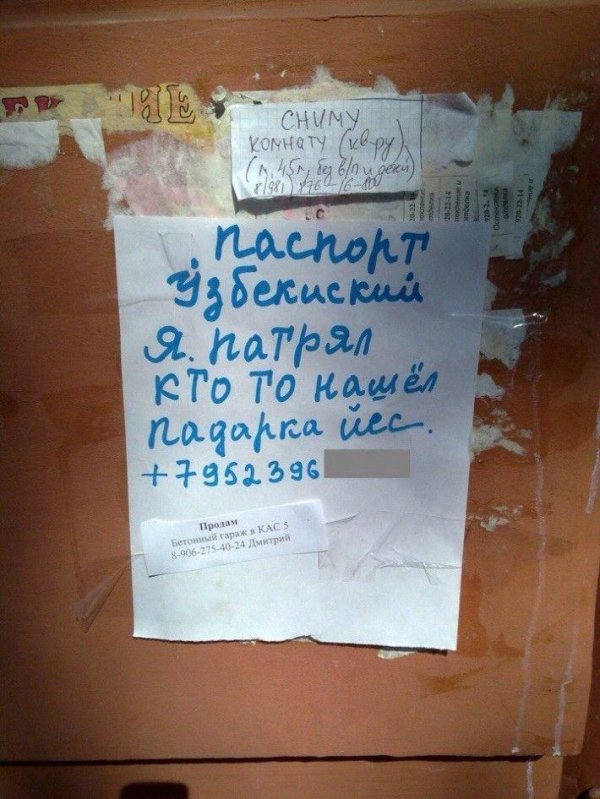 НИЕ
СНИМУ
КОМНАТУ (кв-ру)
ПАСПОРТ
УЗбекиский
Я. ПАТРЯЛ
КТО ТО НАШЁЛ
ПАДАРКА ЙЕС.
+7952396
Продам
Бетонный гараж в КАС 5
8-906-275-40-24 Дмитрий